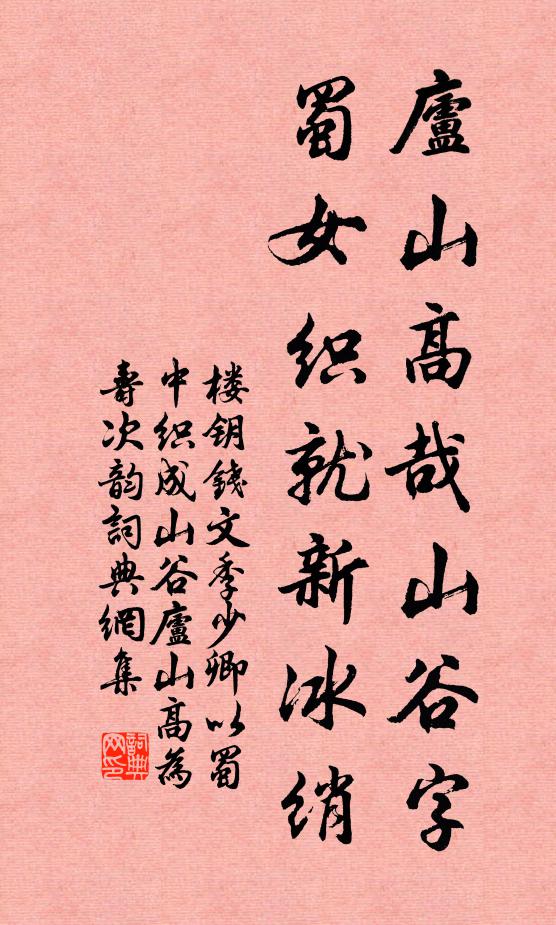 廬山高哉山谷字
蜀女织就新冰绡
楼钥錢文季少卿以蜀
中织成山谷廬山高為
壽次韵詞典網集
詞典网印